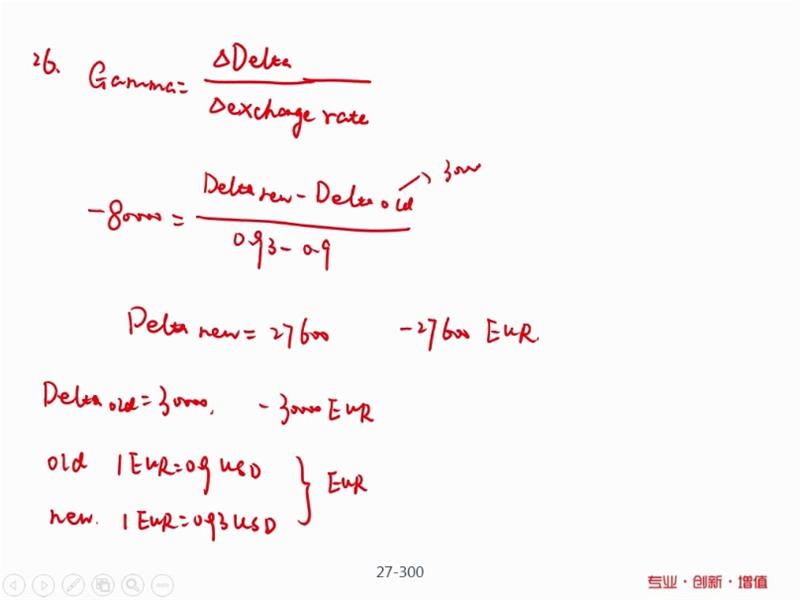 26. Gamma = ΔDelta / Δexchange rate
-80000 = Delta new - Delta old / 0.93 - 0.9
→ 3000
Delta new = 27600 -27600 EUR.
Delta old = 30000, -30000 EUR
old 1 EUR = 0.9 USD
new. 1 EUR = 0.93 USD
} EUR
27-300
专业·创新·增值